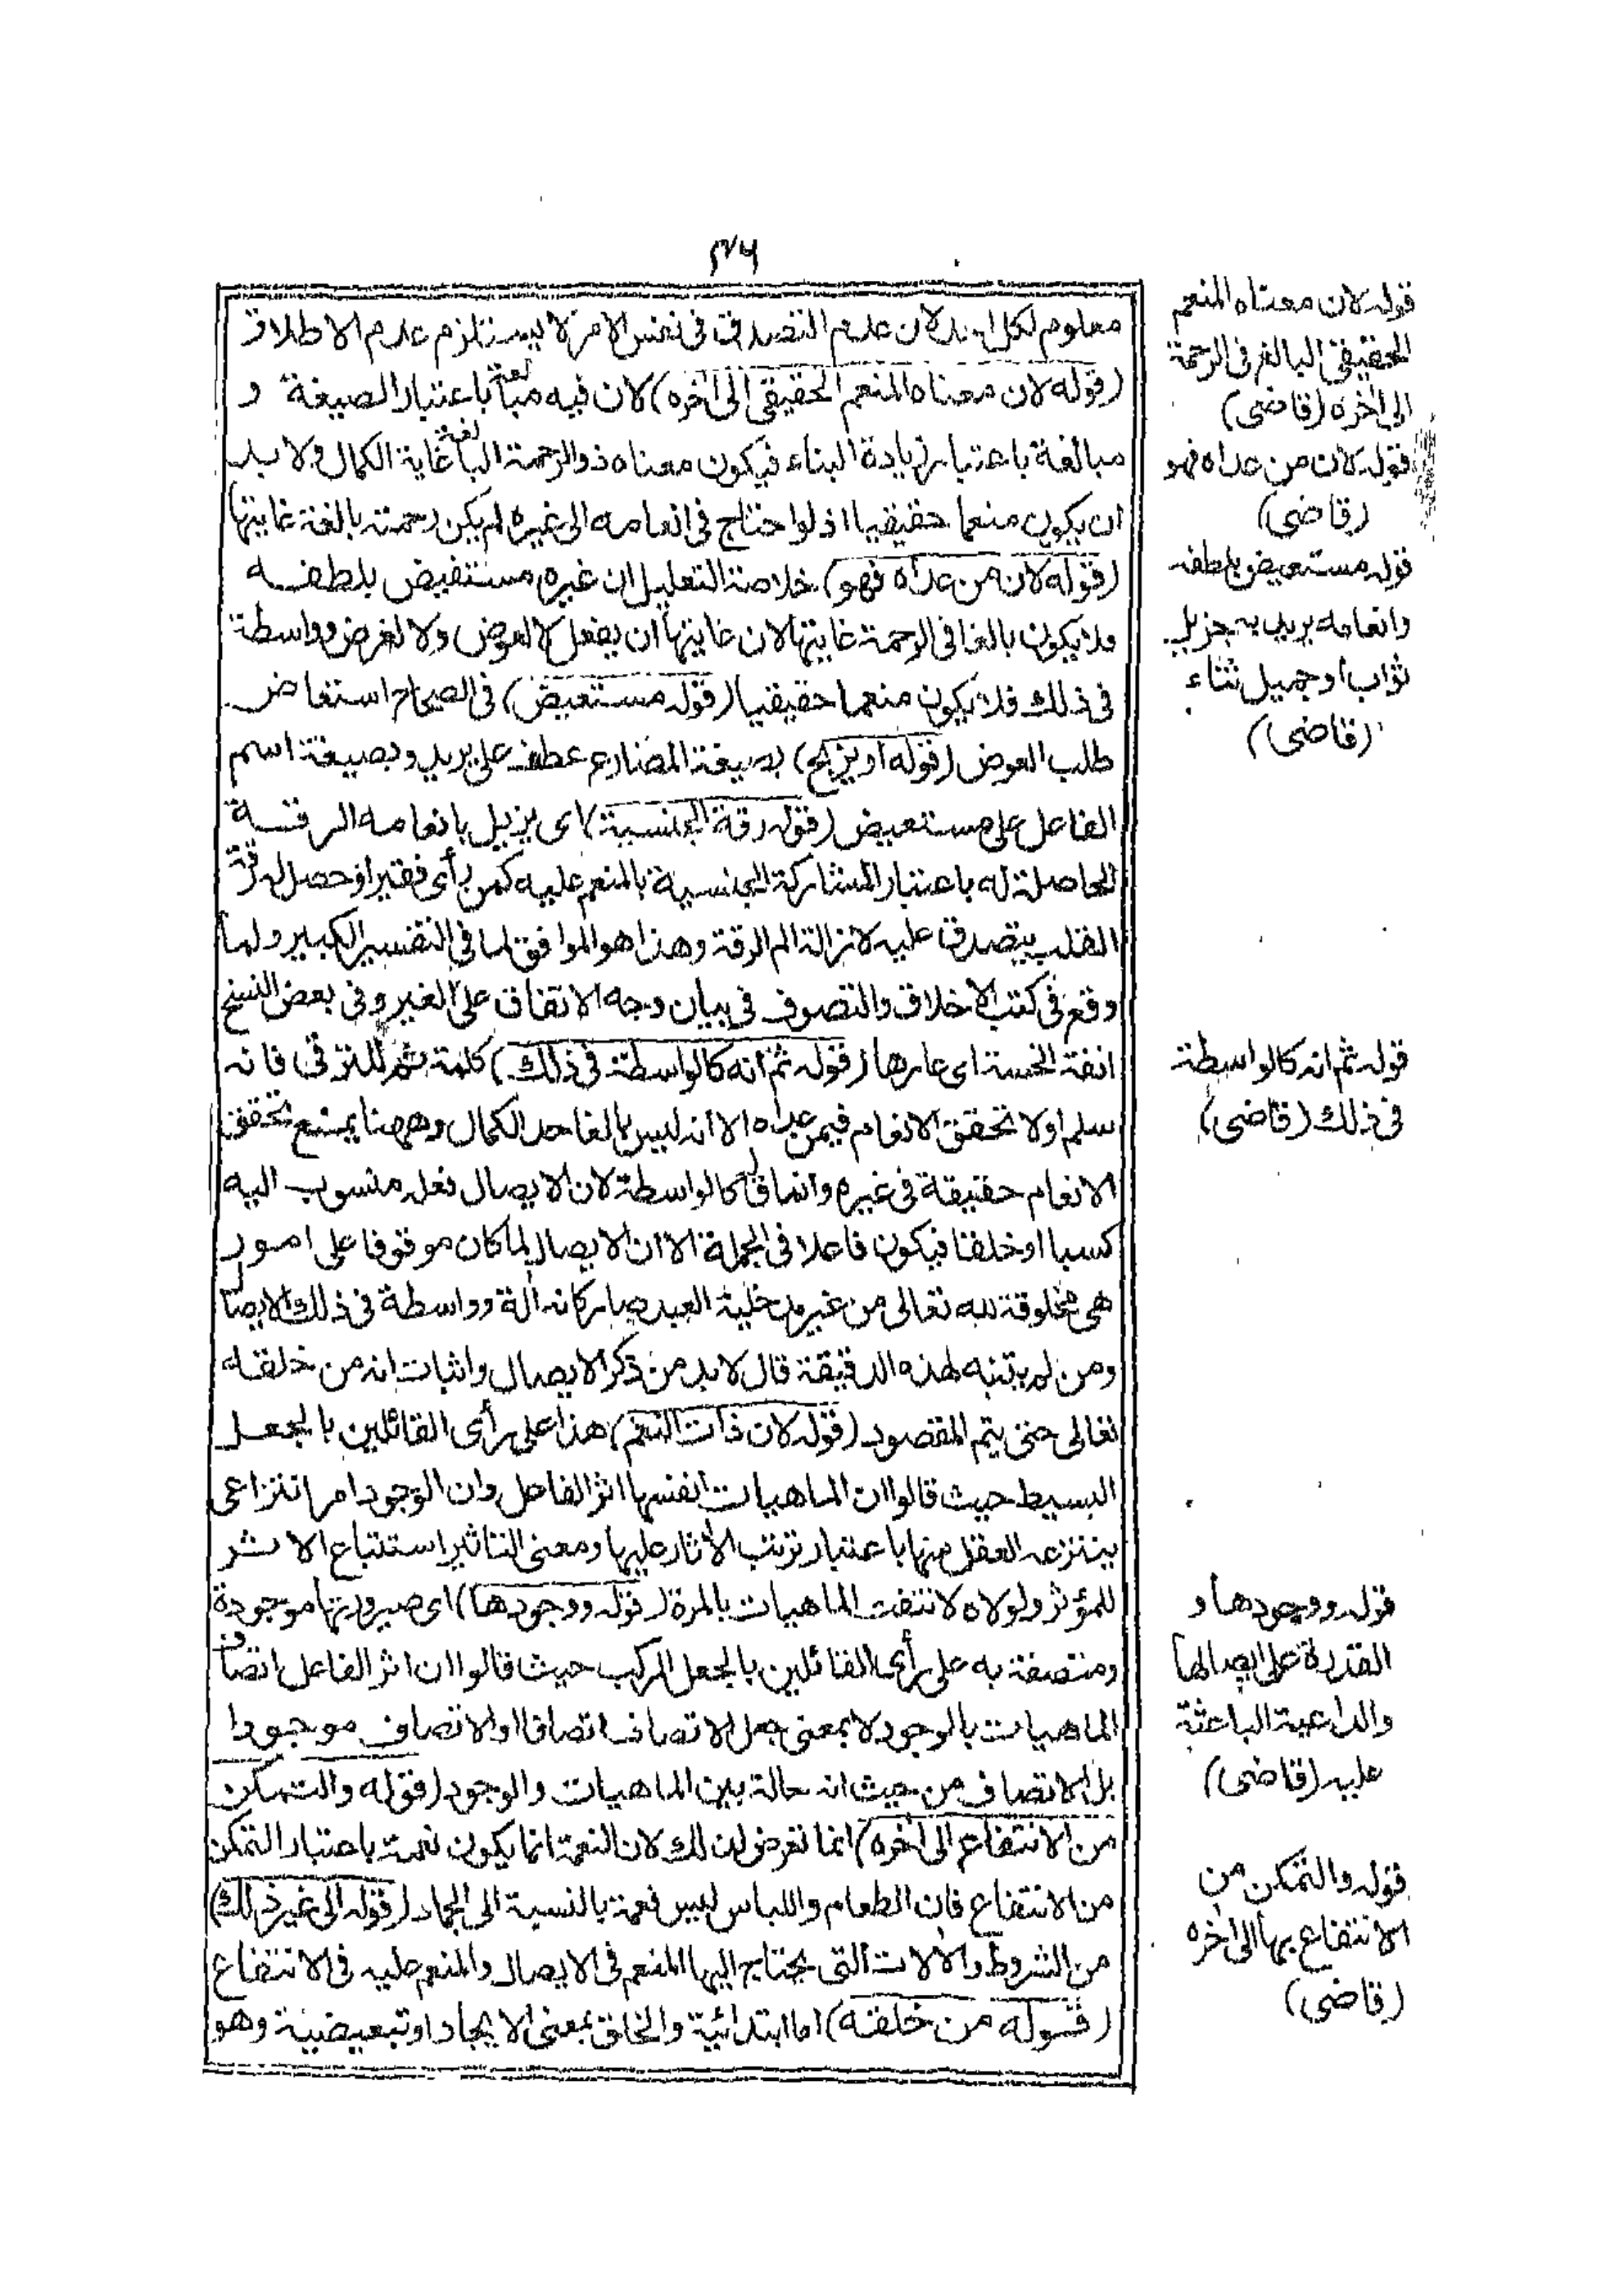 ٣٧٦
معلوم لكل احد لان عدم التصدق فى نفس الامر لا يستلزم عدم الاطلاق
(قوله لان معناه المنعم الحقيقى الى اخره) لان فيه مبالغة باعتبار الصيغة و
مبالغة باعتبار زيادة البناء فيكون معناه ذو الرحمة البالغة غاية الكمال ولابد
ان يكون منعما حقيقيا اذ لو احتاج فى انعامه الى غيره لم يكن رحمته بالغة غايتها
(قوله لان من عداه فهو) خلاصة التعليل ان غيره مستفيض بلطفه
فلا يكون بالغا فى الرحمة غايتها لان غايتها ان يفعل لا لعوض ولا لغرض وواسطة
فى ذلك فلا يكون منعما حقيقيا (قوله مستعيض) فى الصحاح استعاض
طلب العوض (قوله او يزيح) بصيغة المضارع عطف على يريد وبصيغة اسم
الفاعل على مستعيض (قوله رقة الجنسية) اى يزيل بانعامه الرقة
الحاصلة له باعتبار المشاركة الجنسية بالمنعم عليه كمن رأى فقيرا وحصل له رقة
القلب يتصدق عليه لازالة الم الرقة وهذا هو الموافق لما فى التفسير الكبير ولما
وقع فى كتب الاخلاق والتصوف فى بيان وجه الانفاق على الغير وفى بعض النسخ
انفة الخسة اى عارها (قوله ثم انه كالواسطة فى ذلك) كلمة ثم للترقى فانه
سلم اولا تحقق الانعام فيمن عداه الا انه ليس بالغا حد الكمال وههنا يمنع تحقق
الانعام حقيقة فى غيره وانما قال كالواسطة لان الايصال فعله منسوب اليه
كسبا او خلقا فيكون فاعلا فى الجملة الا ان الايصال لما كان موقوفا على امور
هى مخلوقة لله تعالى من غير مدخلية العبد صار كانه آلة وواسطة فى ذلك الايصال
ومن لم يتنبه لهذه الدقيقة قال لابد من ذكر الايصال واثبات انه من خلقه
تعالى حتى يتم المقصود (قوله لان ذات النعم) هذا على رأى القائلين بالجعل
البسيط حيث قالوا ان الماهيات انفسها اثر الفاعل وان الوجود امر انتزاعى
ينتزعه العقل منها باعتبار ترتب الآثار عليها ومعنى التاثير استتباع الاثر
للمؤثر ولولاه لانتفت الماهيات بالمرة (قوله ووجودها) اى صيرورتها موجودة
ومتصفة به على رأى القائلين بالجعل المركب حيث قالوا ان اثر الفاعل اتصاف
الماهيات بالوجود لا بمعنى جعل الاتصاف اتصافا او الاتصاف موجودا
بل الاتصاف من حيث انه حالة بين الماهيات والوجود (قوله والتمكن
من الانتفاع الى اخره) انما تعرض لذلك لان النعمة انما يكون نعمة باعتبار التمكن
من الانتفاع فان الطعام واللباس ليس نعمة بالنسبة الى الجماد (قوله الى غير ذلك)
من الشروط والآلات التى يحتاج اليها المنعم فى الايصال والمنعم عليه فى الانتفاع
(قوله من خلقه) اما ابتدائية والخلق بمعنى الايجاد او تبعيضية وهو
قوله لان معناه المنعم
الحقيقى البالغ فى الرحمة
الى اخره (قاضى)
قوله لان من عداه فهو
(قاضى)
قوله مستعيض بلطفه
وانعامه يريد به جزيل
ثواب او جميل ثناء
(قاضى)
قوله ثم انه كالواسطة
فى ذلك (قاضى)
قوله ووجودها و
القدرة على ايصالها
والداعية الباعثة
عليه (قاضى)
قوله والتمكن من
الانتفاع بها الى اخره
(قاضى)